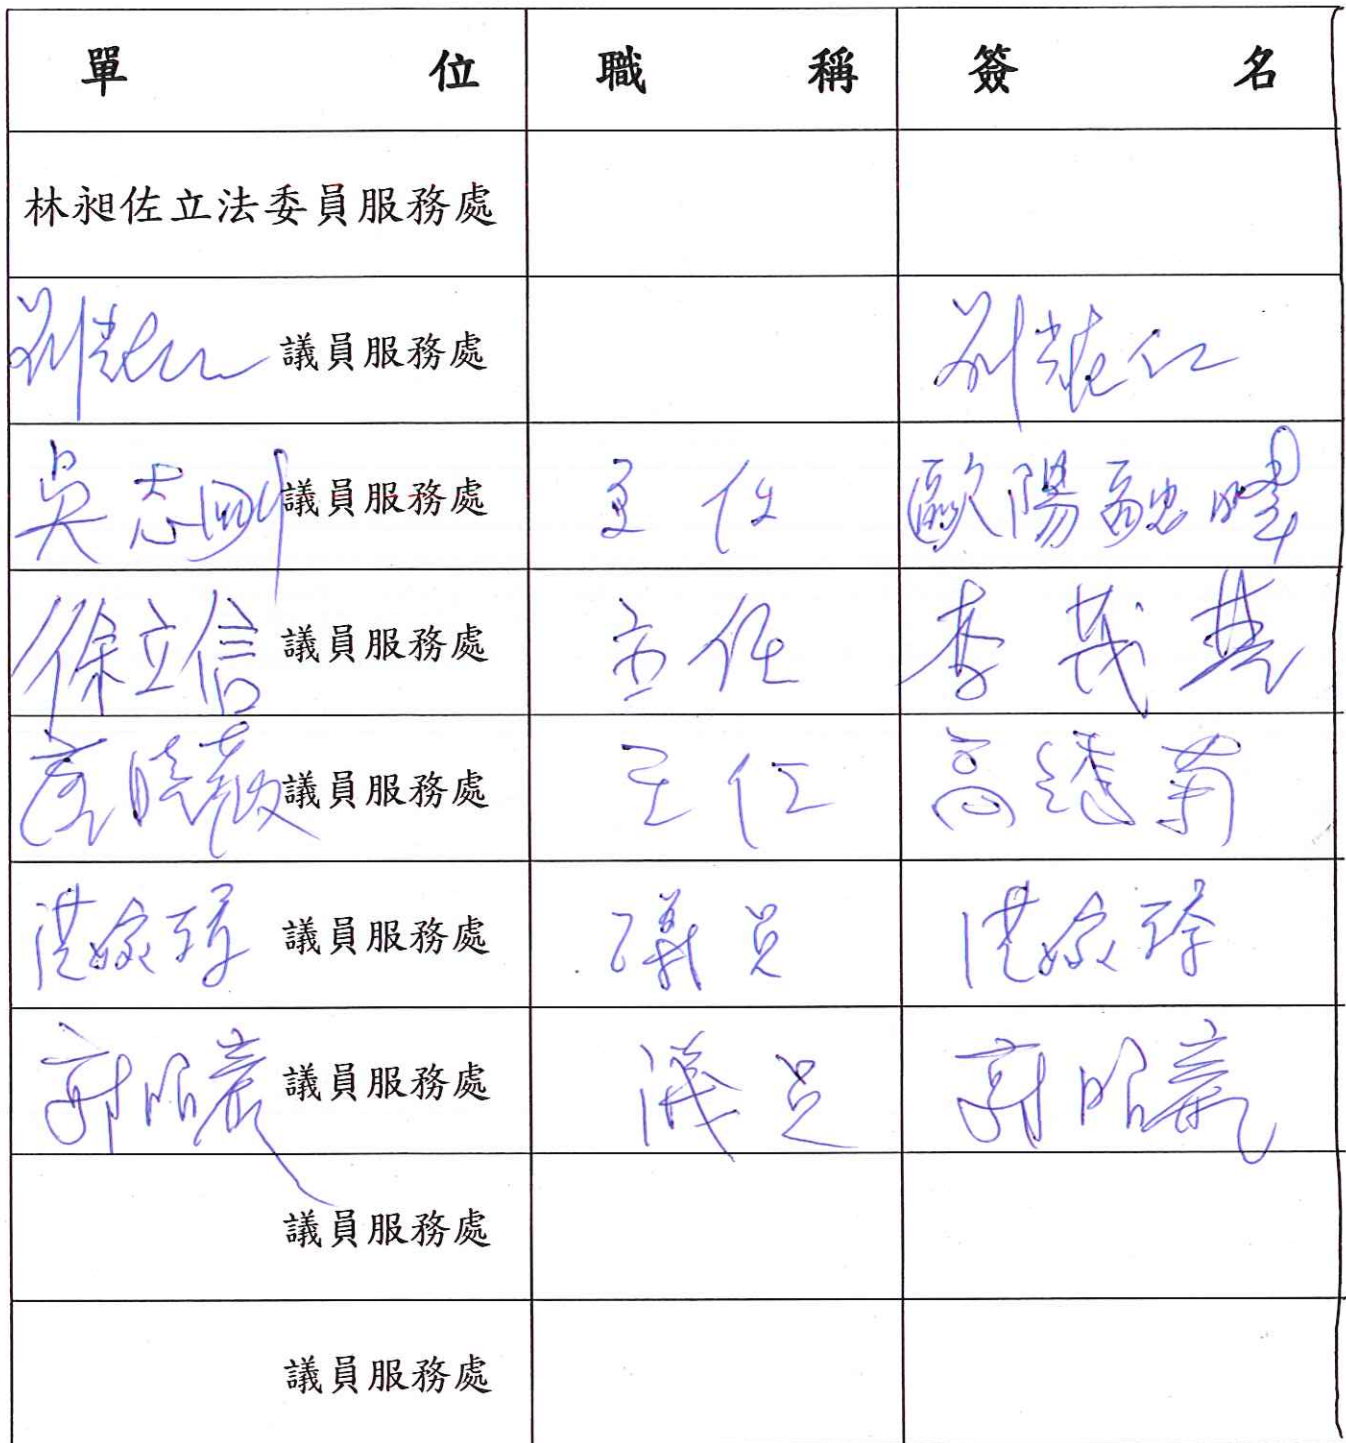 單位 職稱 簽名
林昶佐立法委員服務處
劉耀仁 議員服務處 劉耀仁
吳志剛 議員服務處 主任 歐陽
徐立信 議員服務處 主任 李茂
議員服務處 主任 高
洪婉臻 議員服務處 議員 洪婉臻
郭昭巖 議員服務處 議員 郭昭巖
議員服務處
議員服務處